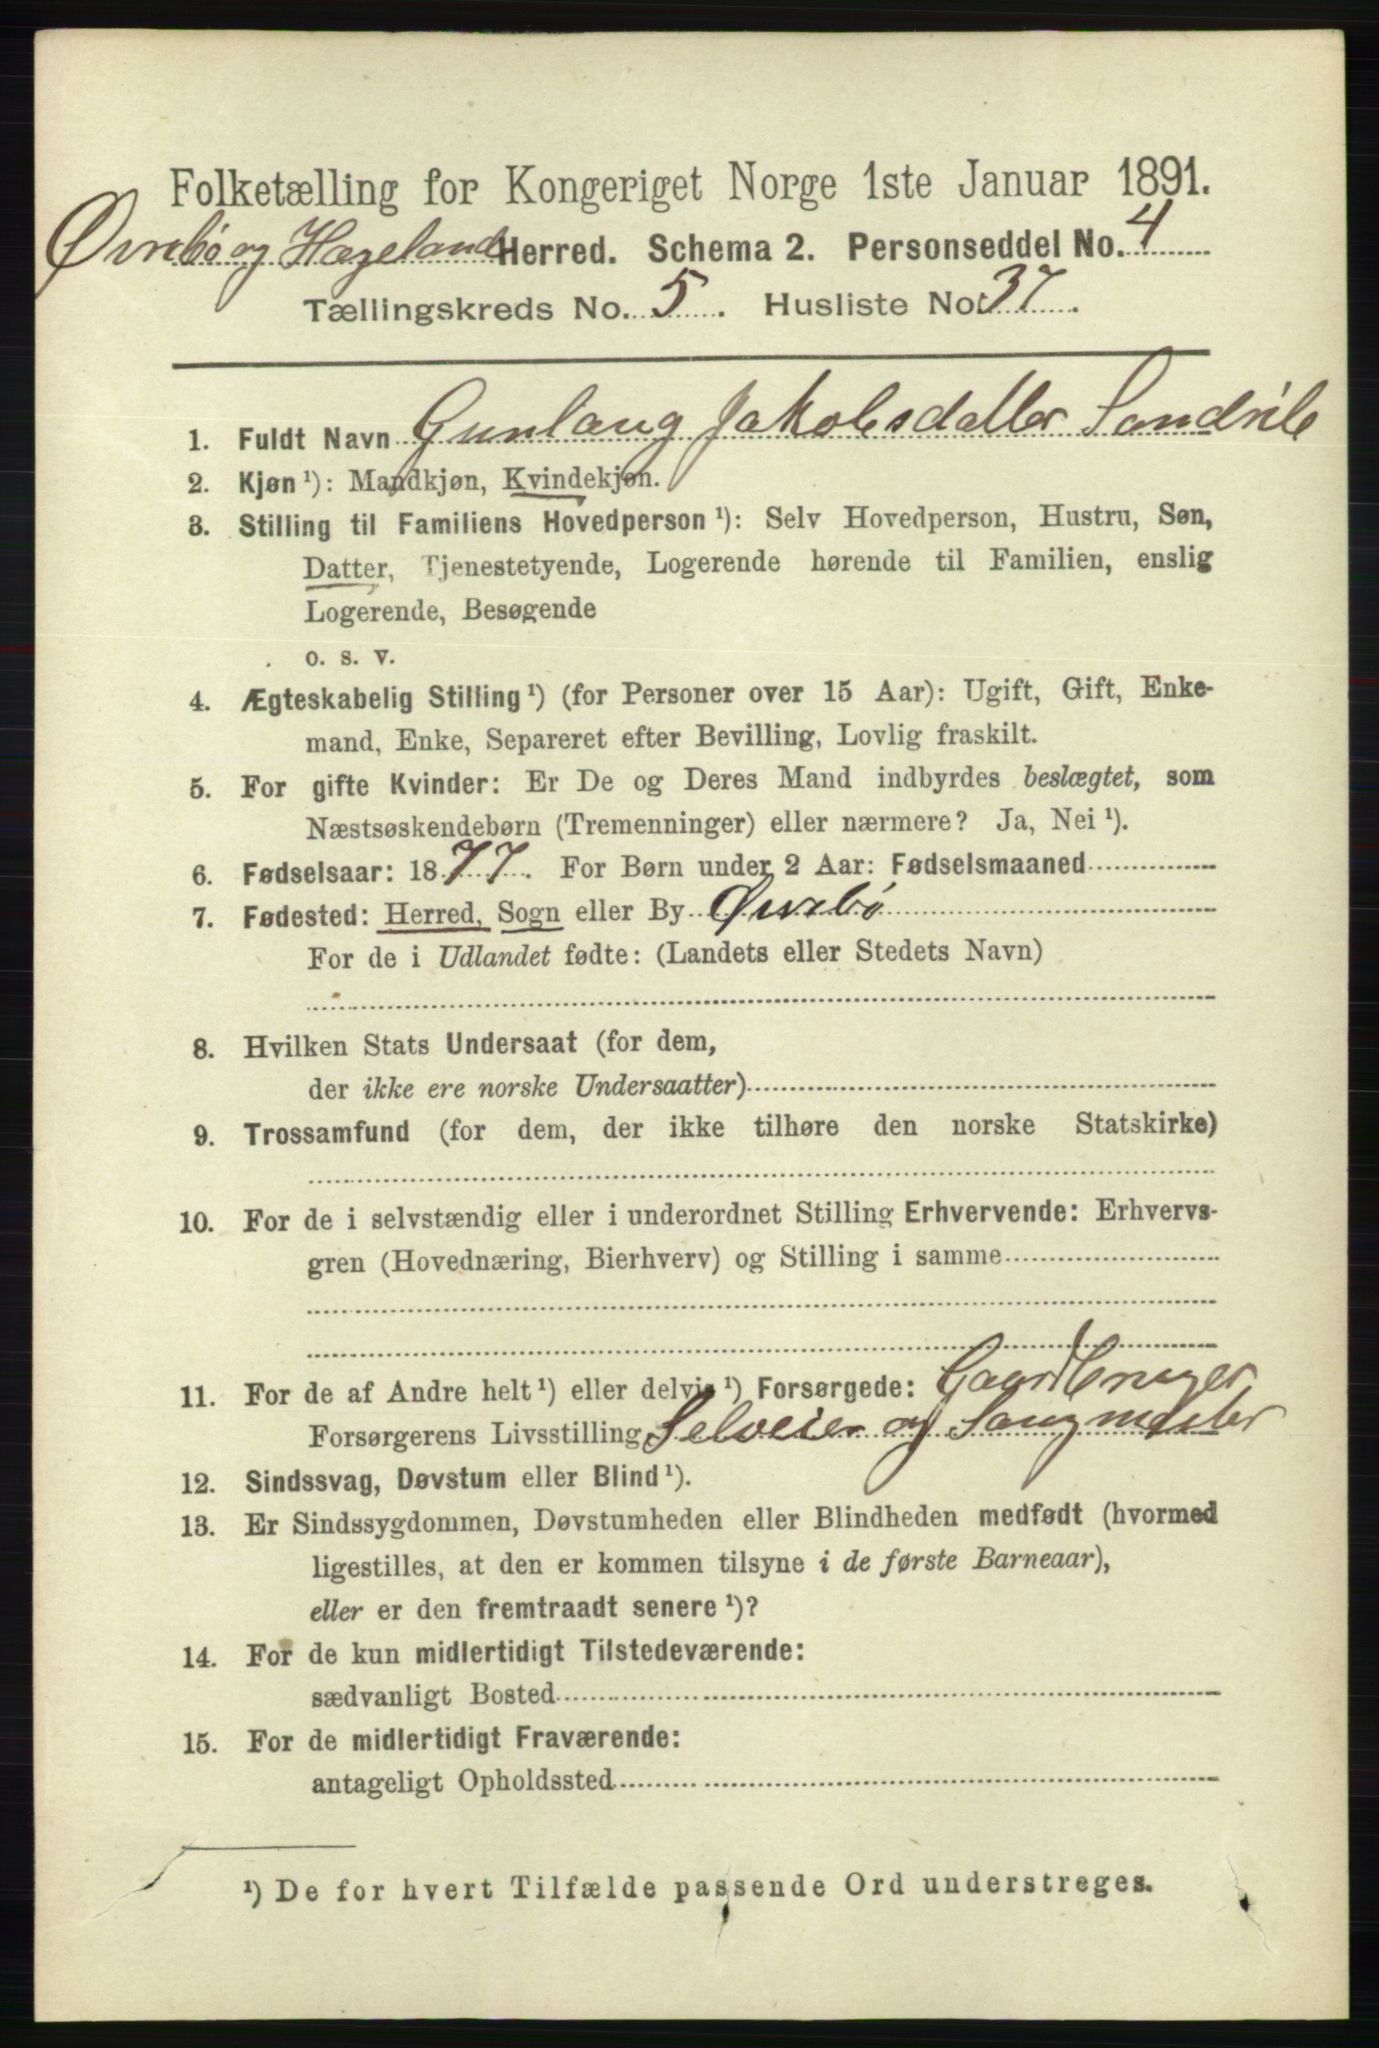 Folketælling for Kongeriget Norge 1ste Januar 1891.
Øvrebø og Hægeland Herred. Schema 2. Personseddel No. 4
Tællingskreds No. 5. Husliste No. 37.
1. Fuldt Navn Gunlaug Jakobsdatter
2. Kjøn ¹): Mandkjøn, Kvindekjøn.
3. Stilling til Familiens Hovedperson ¹): Selv Hovedperson, Hustru, Søn,
Datter, Tjenestetyende, Logerende hørende til Familien, enslig
Logerende, Besøgende
o. s. v.
4. Ægteskabelig Stilling ¹) (for Personer over 15 Aar): Ugift, Gift, Enke-
mand, Enke, Separeret efter Bevilling, Lovlig fraskilt.
5. For gifte Kvinder: Er De og Deres Mand indbyrdes beslægtet, som
Næstsøskendebørn (Tremenninger) eller nærmere? Ja, Nei ¹).
6. Fødselsaar: 1877. For Børn under 2 Aar: Fødselsmaaned
7. Fødested: Herred, Sogn eller By Øvrebø
For de i Udlandet fødte: (Landets eller Stedets Navn)
8. Hvilken Stats Undersaat (for dem,
der ikke ere norske Undersaatter)
9. Trossamfund (for dem, der ikke tilhøre den norske Statskirke)
10. For de i selvstændig eller i underordnet Stilling Erhvervende: Erhvervs-
gren (Hovednæring, Bierhverv) og Stilling i samme
11. For de af Andre helt ¹) eller delvis ¹) Forsørgede: Gaardbruger
Forsørgerens Livsstilling Selveier og Saugmester
12. Sindssvag, Døvstum eller Blind ¹).
13. Er Sindssygdommen, Døvstumheden eller Blindheden medfødt (hvormed
ligestilles, at den er kommen tilsyne i de første Barneaar),
eller er den fremtraadt senere ¹)?
14. For de kun midlertidigt Tilstedeværende:
sædvanligt Bosted
15. For de midlertidigt Fraværende:
antageligt Opholdssted
¹) De for hvert Tilfælde passende Ord understreges.